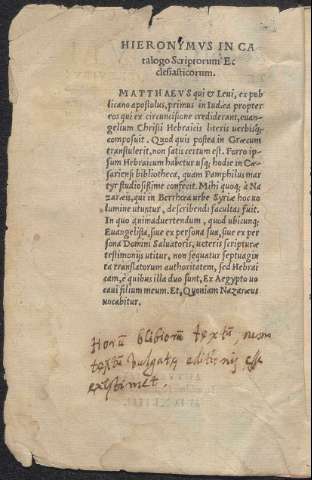 HIERONYMVS IN CA
talogo Scriptorum Ec
clesiasticorum.
MATTHAEVS qui & Leui, ex pub
licano apostolus, primus in Iudæa propter
eos qui ex circuncisione crediderant, euan-
gelium Christi Hebraicis literis uerbisq;
composuit. Quod quis postea in Græcum
transtulerit, non satis certum est. Porro ip-
sum Hebraicum habetur usq; hodie in Cæ-
sariensi bibliotheca, quam Pamphilus mar
tyr studiosissime confecit. Mihi quoq; à Na
zaræis, qui in Berrhœa urbe Syriæ hoc uo
lumine utuntur, describendi facultas fuit.
In quo animaduertendum, quod ubicunq;
Euangelista, siue ex persona sua, siue ex per
sona Domini Saluatoris, ueteris scripturæ
testimonijs utitur, non sequatur septuagin
ta translatorum authoritatem, sed Hebrai
cam, è quibus illa duo sunt, Ex Aegypto uo
caui filium meum. Et, Quoniam Nazaræus
uocabitur.
Horū blibiorū textū, nemo
textū vulgatæ editionis esse
existimet.